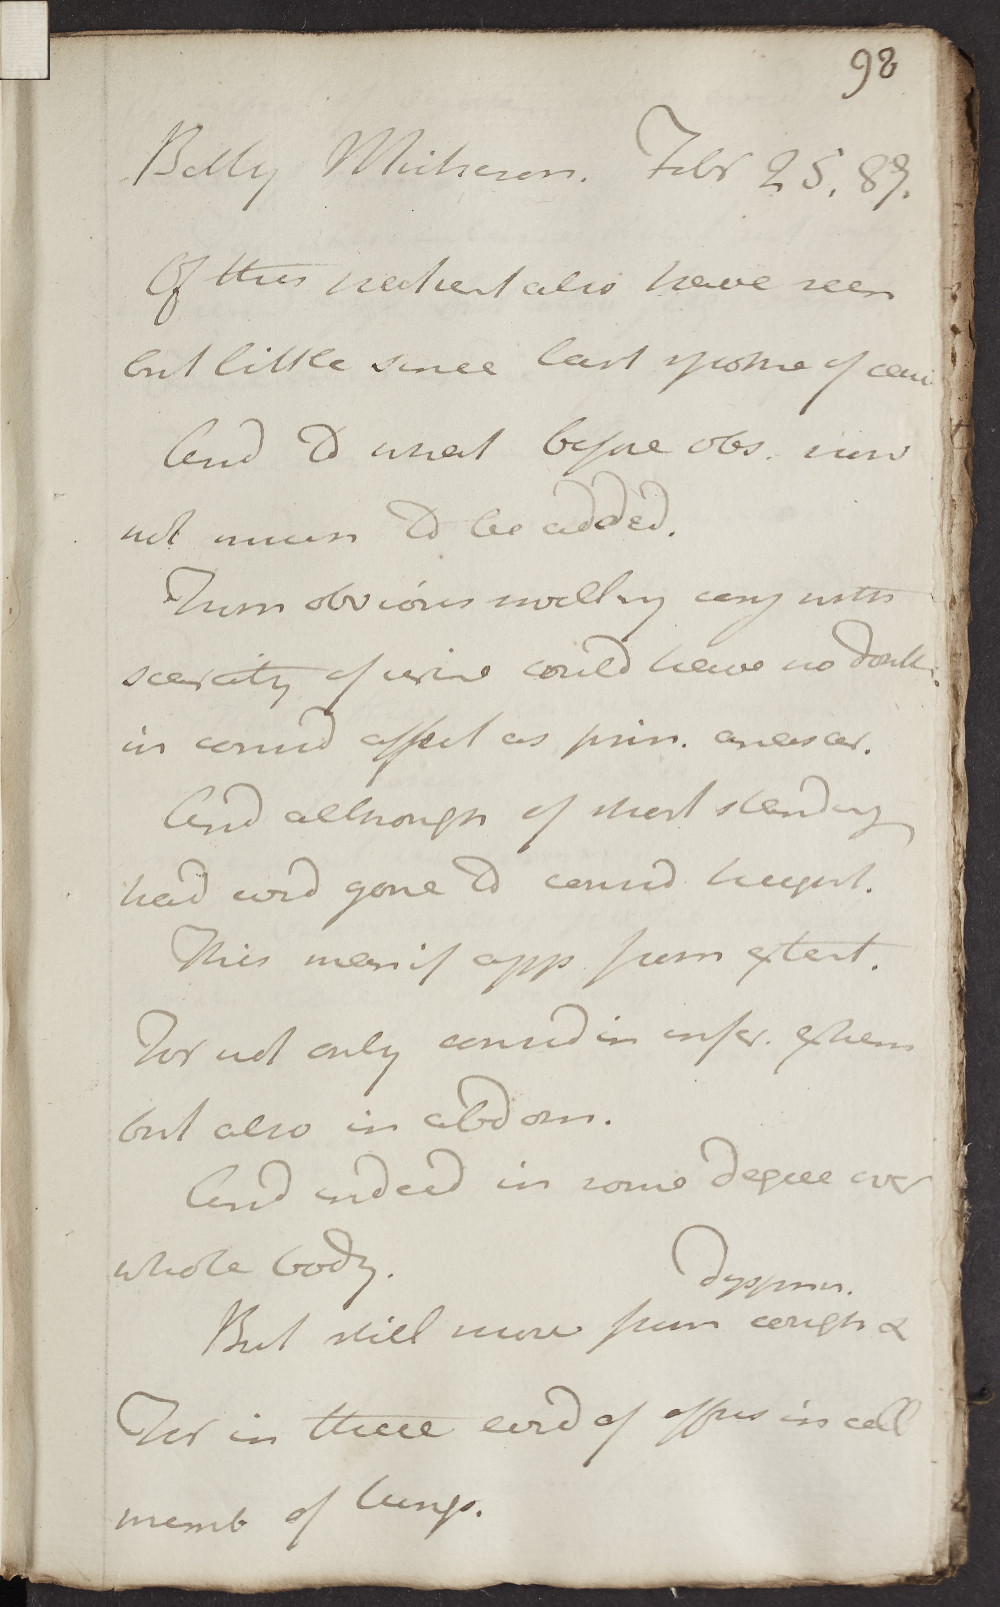 98
Betty Mathieson. Febr 25. 89.
Of this patient also have seen
but little since last spoke of case
And to what before obs. now
not much to be added.
From obvious swelling conj with
scarcity of urine could have no doubt
in consid affect as prin. anasar.
And although of short standing
had evid gone to consid height.
This manif app from extent.
For not only consid in infer. extrem
but also in abdom.
And indeed in some degree over
whole body.
dyspnœ.
But still more from cough &
For in these evid of effus in cell
memb of lungs.